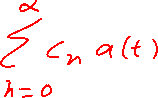 \sum_{n=0}^{\alpha} c_n a(t)